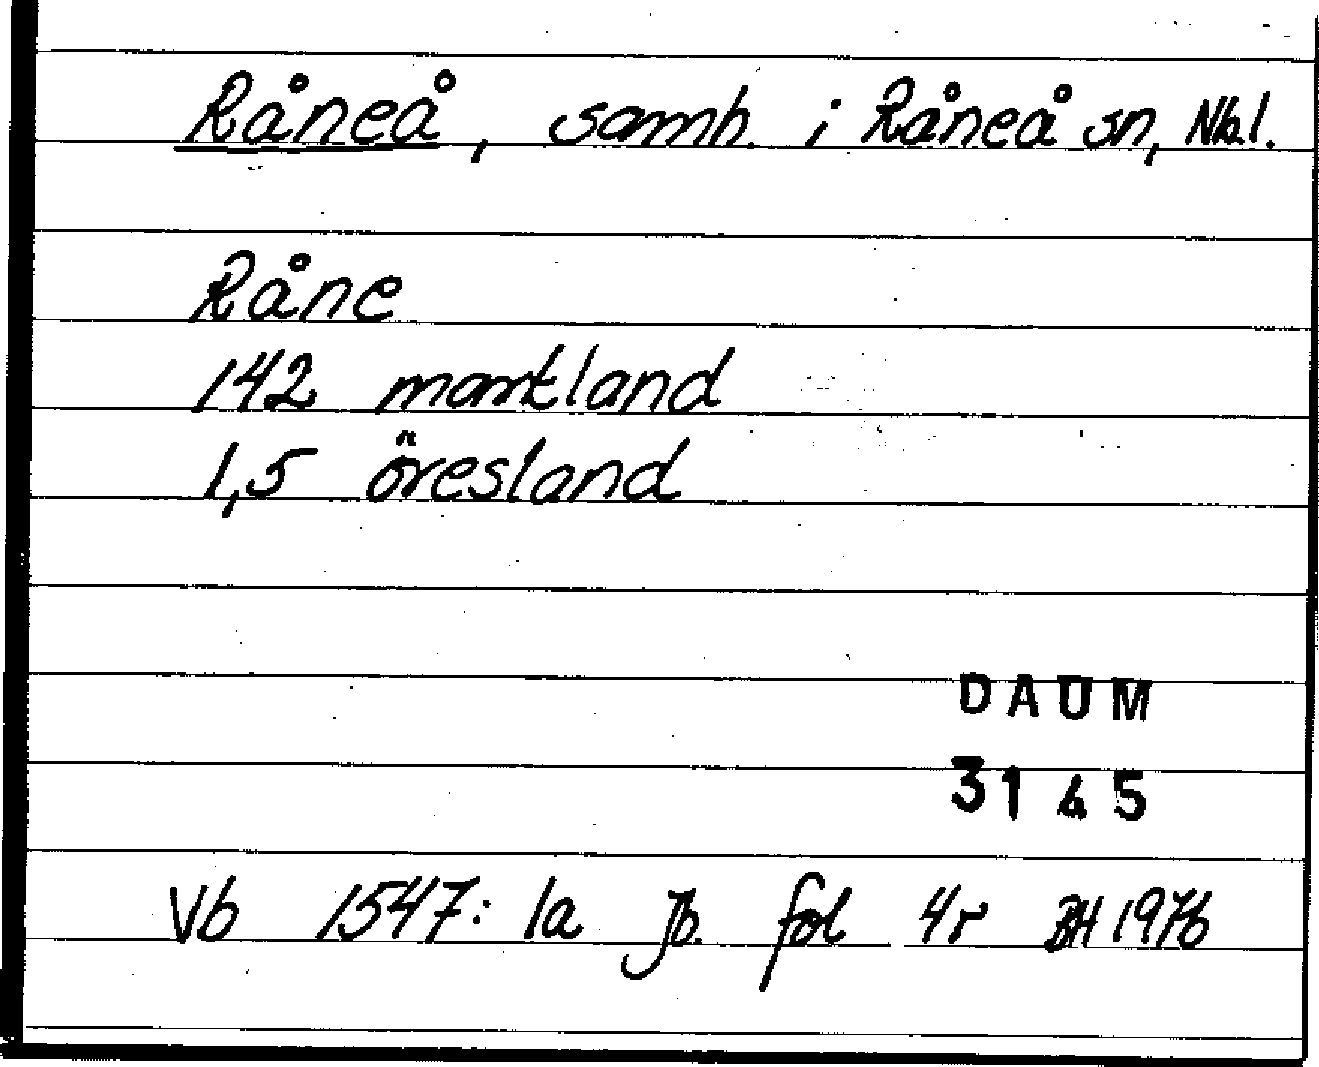 Råneå, samh. i Råneå sn, Nb.l.
Råne
142 marktland
1,5 öresland
DAUM
3145
Vb 1547: 1a Jb. fol 4r BH 1976